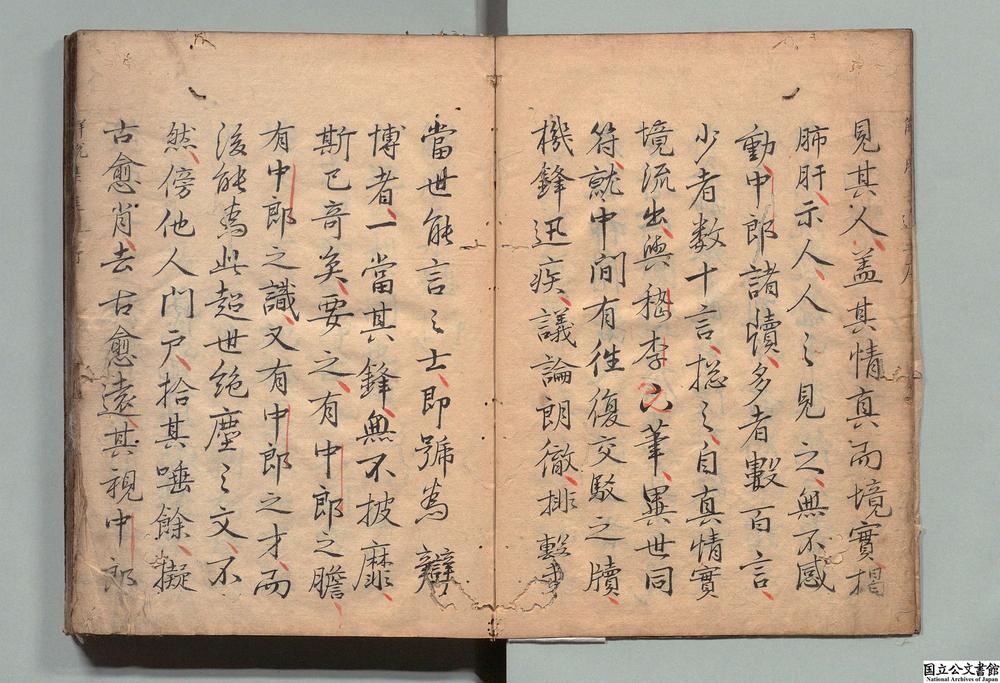 見其人蓋其情真而境實揭
肺肝示人人之見之無不感
動中郎諸牘多者數百言
少者数十言総之自真情實
境流出與嵇李下筆異世同
符就中間有徃復交駁之牘
機鋒迅疾議論朗徹排擊
當世能言之士即號為辯
博者一當其鋒無不披靡
斯已奇矣要之有中郎之膽
有中郎之識又有中郎之才而
後能為此超世絶塵之文不
然傍他人門戸拾其唾餘擬
古愈肖去古愈遠其視中郎
国立公文書館
National Archives of Japan